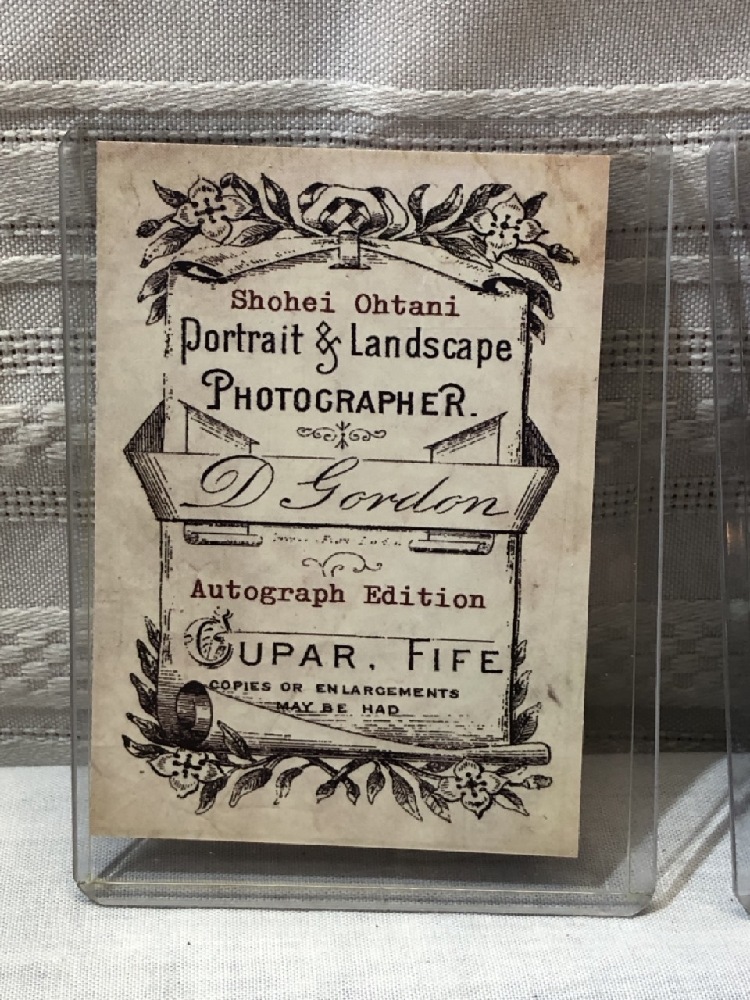 Shohei Ohtani
Portrait & Landscape
PHOTOGRAPHER.
D Gordon
Autograph Edition
CUPAR, FIFE
COPIES OR ENLARGEMENTS
MAY BE HAD